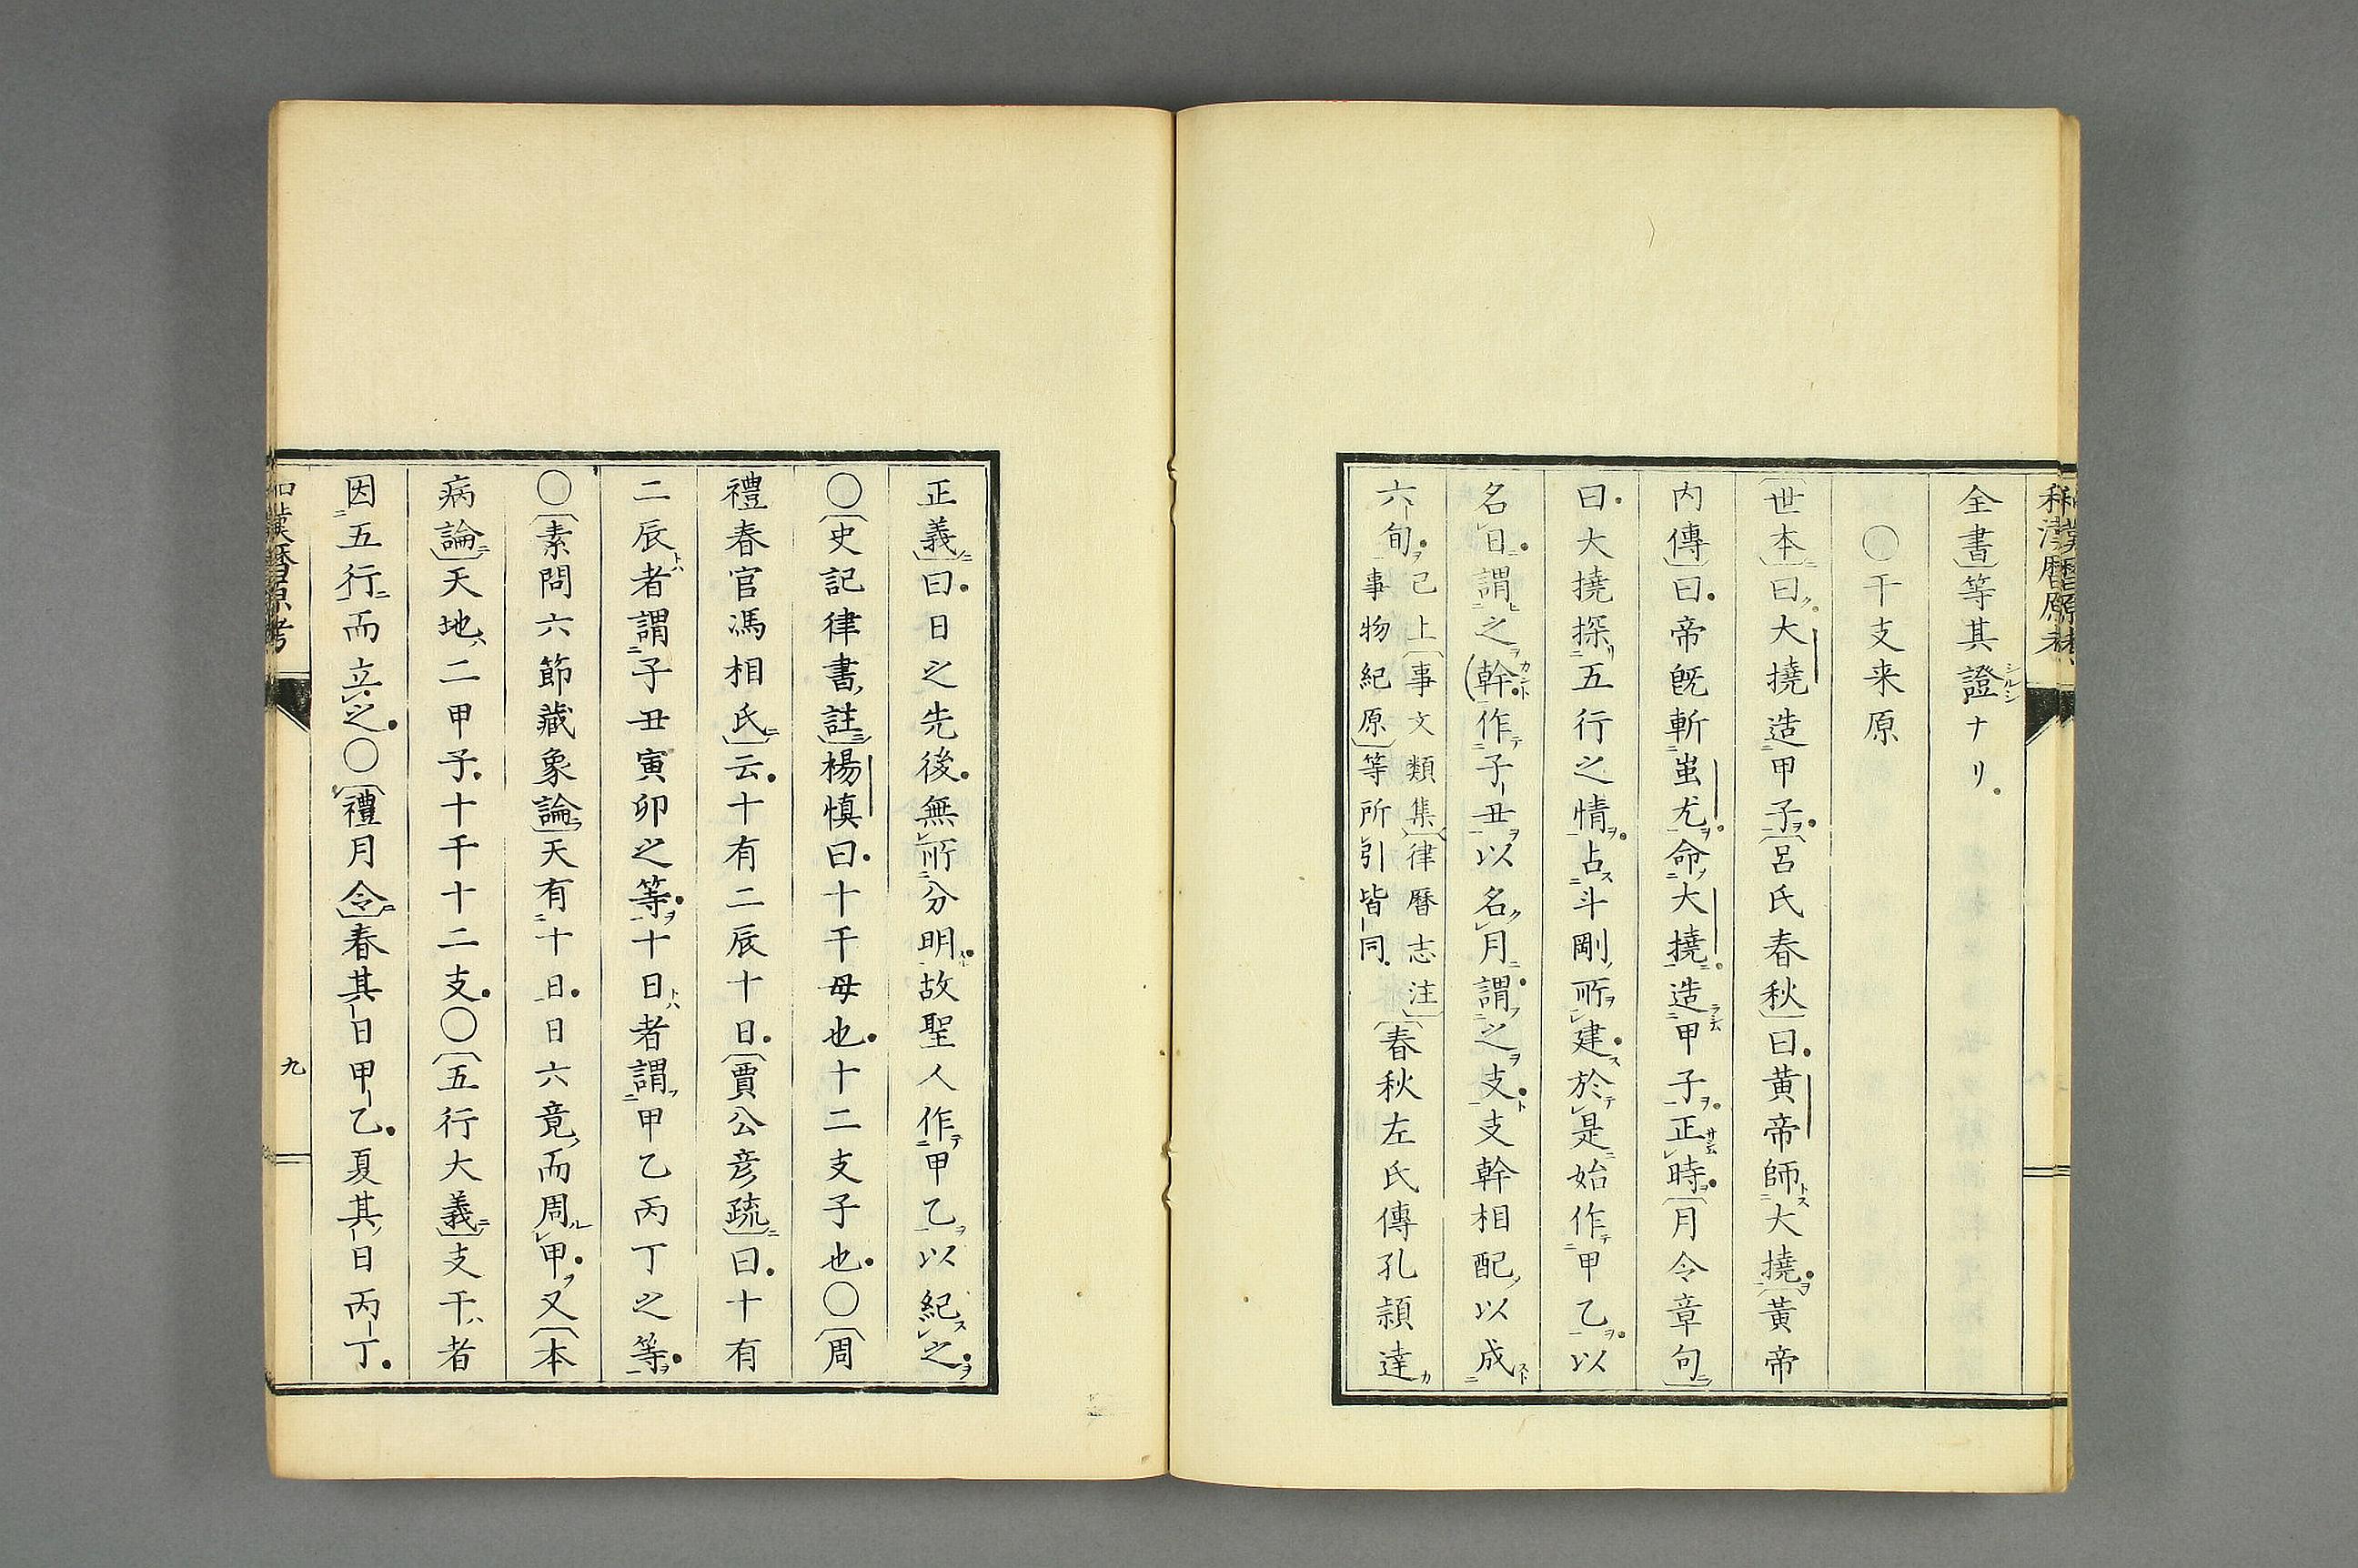 和漢暦原考
全書等其證ナリ
〇干支来原
世本曰大撓造甲子呂氏春秋曰黄帝師大撓黄帝
内傳曰帝既斬蚩尤命大撓造甲子正時月令章句
曰大撓探五行之情占斗剛所建於是始作甲乙以
名日謂之幹作子丑以名月謂之支支幹相配以成
六旬
已上事文類集律暦志注
事物紀原等所引皆同
春秋左氏傳孔頴達
正義曰日之先後無所分明故聖人作甲乙以紀之
〇史記律書註楊慎曰十干母也十二支子也〇周
禮春官馮相氏云十有二辰十日賈公彦疏曰十有
二辰者謂子丑寅卯之等十日者謂甲乙丙丁之等
〇素問六節藏象論天有十日日六竟而周甲又本
病論天地二甲子十干十二支〇五行大義支干者
因五行而立之〇禮月令春其日甲乙夏其日丙丁
和漢暦原考
九